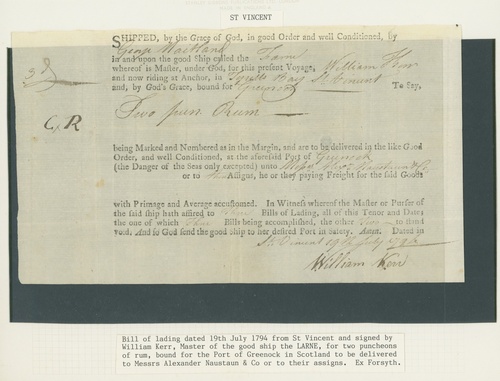 ST VINCENT
SHIPPED, by the Grace of God, in good Order and well Conditioned, by
George Maitland
in and upon the good Ship called the
whereof is Master, under God, for this present Voyage, William Kerr
and now riding at Anchor, in Bay St Vincent
and, by God's Grace, bound for Greenock To say,
Two pun Rum
C R
being Marked and Numbered as in the Margin, and are to be delivered in the like Good
Order, and well Conditioned, at the aforesaid Port of Greenock
(the Danger of the Seas only excepted) unto Messrs Alexr & Co
or to Assigns, he or they paying Freight for the said Goods
with Primage and Average accustomed. In Witness whereof the Master or Purser of
the said ship hath affirmed to Bills of Lading, all of this Tenor and Date;
the one of which Bills being accomplished, the other to stand
void. And so God send the good Ship to her desired Port in Safety. Amen. Dated in
St Vincent 19th July 1794
William Kerr
Bill of lading dated 19th July 1794 from St Vincent and signed by
William Kerr, Master of the good ship the LARNE, for two puncheons
of rum, bound for the Port of Greenock in Scotland to be delivered
to Messrs Alexander Naustaun & Co or to their assigns. Ex Forsyth.